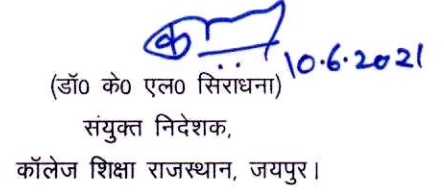 10.6.2021
(डॉ0 के0 एल0 सिराधना)
संयुक्त निदेशक,
कॉलेज शिक्षा राजस्थान, जयपुर।